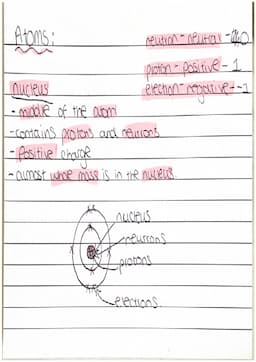 Atoms:
neutron - neutral - 0
proton - positive - 1
electron - negative - -1
nucleus
- middle of the atom
- contains protons and neurons
- Positive charge
- almost whole mass is in the nucleus.
nucleus
neurrons
protons
elections.